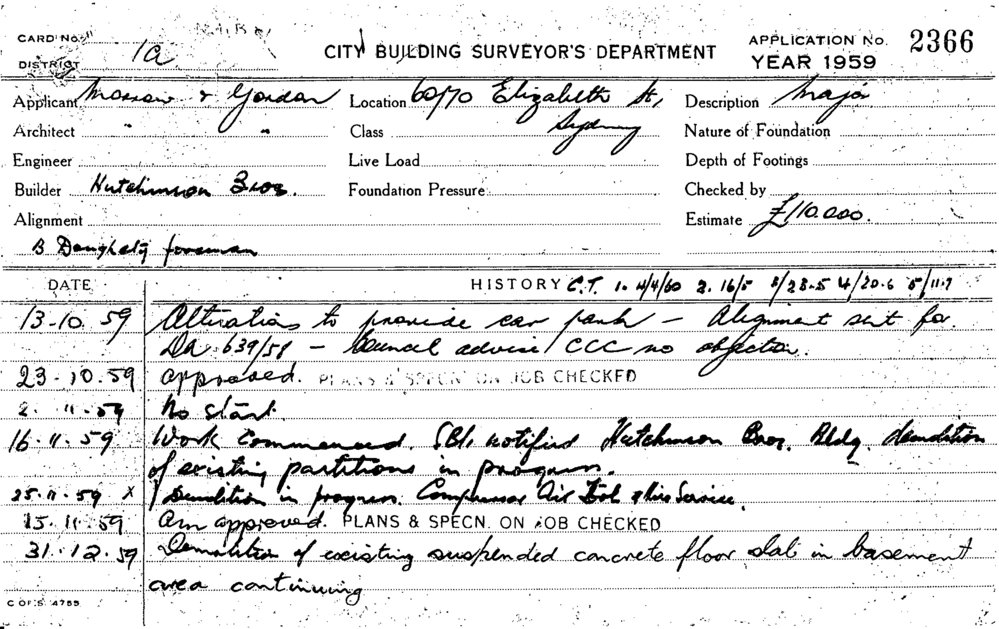 CARD No. 11
DISTRICT 1a
CITY BUILDING SURVEYOR'S DEPARTMENT
APPLICATION No. 2366
YEAR 1959
Applicant Morrow & Gordon Location 60/70 Elizabeth St, Description Major
Sydney
Architect " " Class Nature of Foundation
Engineer Live Load Depth of Footings
Builder Hutchinson Bros. Foundation Pressure Checked by
Alignment Estimate £110.000.
B Dougherty foreman
DATE HISTORY C.T. 1. 4/4/60 2. 16/5 3/23.5 4/20.6 5/11.7
13-10.59 Alterations to provide car park — Alignment sent for
DA 639/58 — Council advise CCC no objection.
23.10.59 approved. PLANS & SPECN. ON JOB CHECKED
2.11.59 No start.
16.11.59 Work Commenced. notified Hutchinson Bros. Bldg. demolition
of existing partitions in progress.
25.11.59 x Demolition in progress. Compressor Air Service.
15.11.59 Am approved. PLANS & SPECN. ON JOB CHECKED
31.12.59 Demolition of existing suspended concrete floor slab in basement
area continuing
C OF S 4755